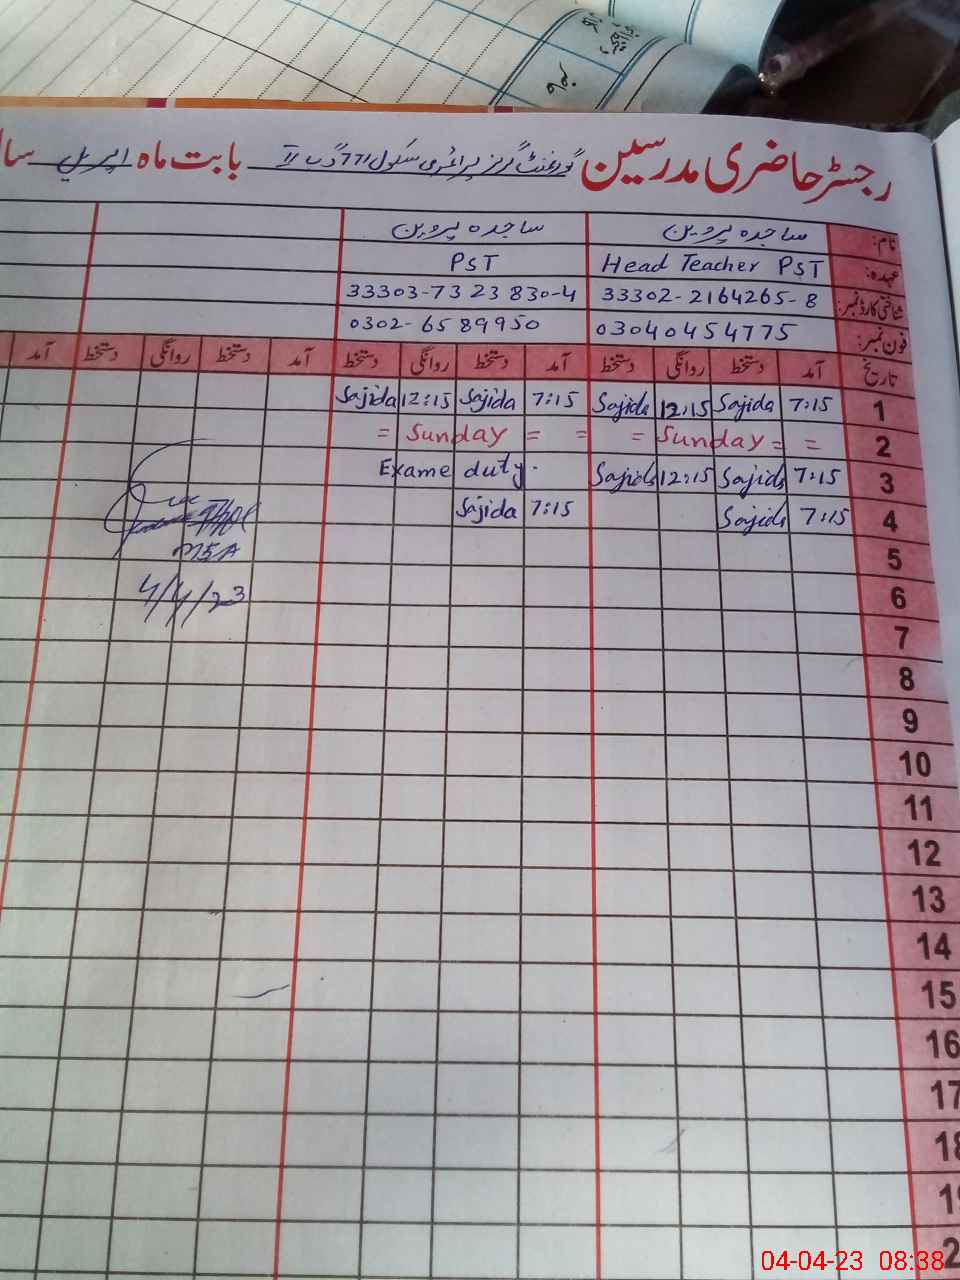 رجسٹر حاضری مدرسین گورنمنٹ گرلز پرائمری سکول 771 گ ب II بابت ماہ اپریل سا
نام: ساجدہ پروین ساجدہ پروین
عہدہ: Head Teacher PST PST
شناختی کارڈ نمبر: 33302-2164265-8 33303-7323830-4
فون نمبر: 03040454775 0302-6589950
تاریخ آمد دستخط روانگی دستخط آمد دستخط روانگی دستخط آمد دستخط روانگی دستخط آمد
1 7:15 Sajida 12:15 Sajida 7:15 Sajida 12:15 Sajida
2 = = Sunday = = = Sunday =
3 7:15 Sajida 12:15 Sajida Exame duty.
4 7:15 Sajida 7:15 Sajida
MEA
4/4/23
5
6
7
8
9
10
11
12
13
14
15
16
17
18
19
2
04-04-23 08:38